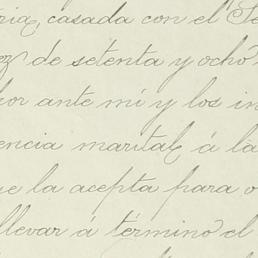 ria, casada con el Se
ez de setenta y ocho
or ante mí y los in
encia marital á la
ue la acepta para o
llevar á término el